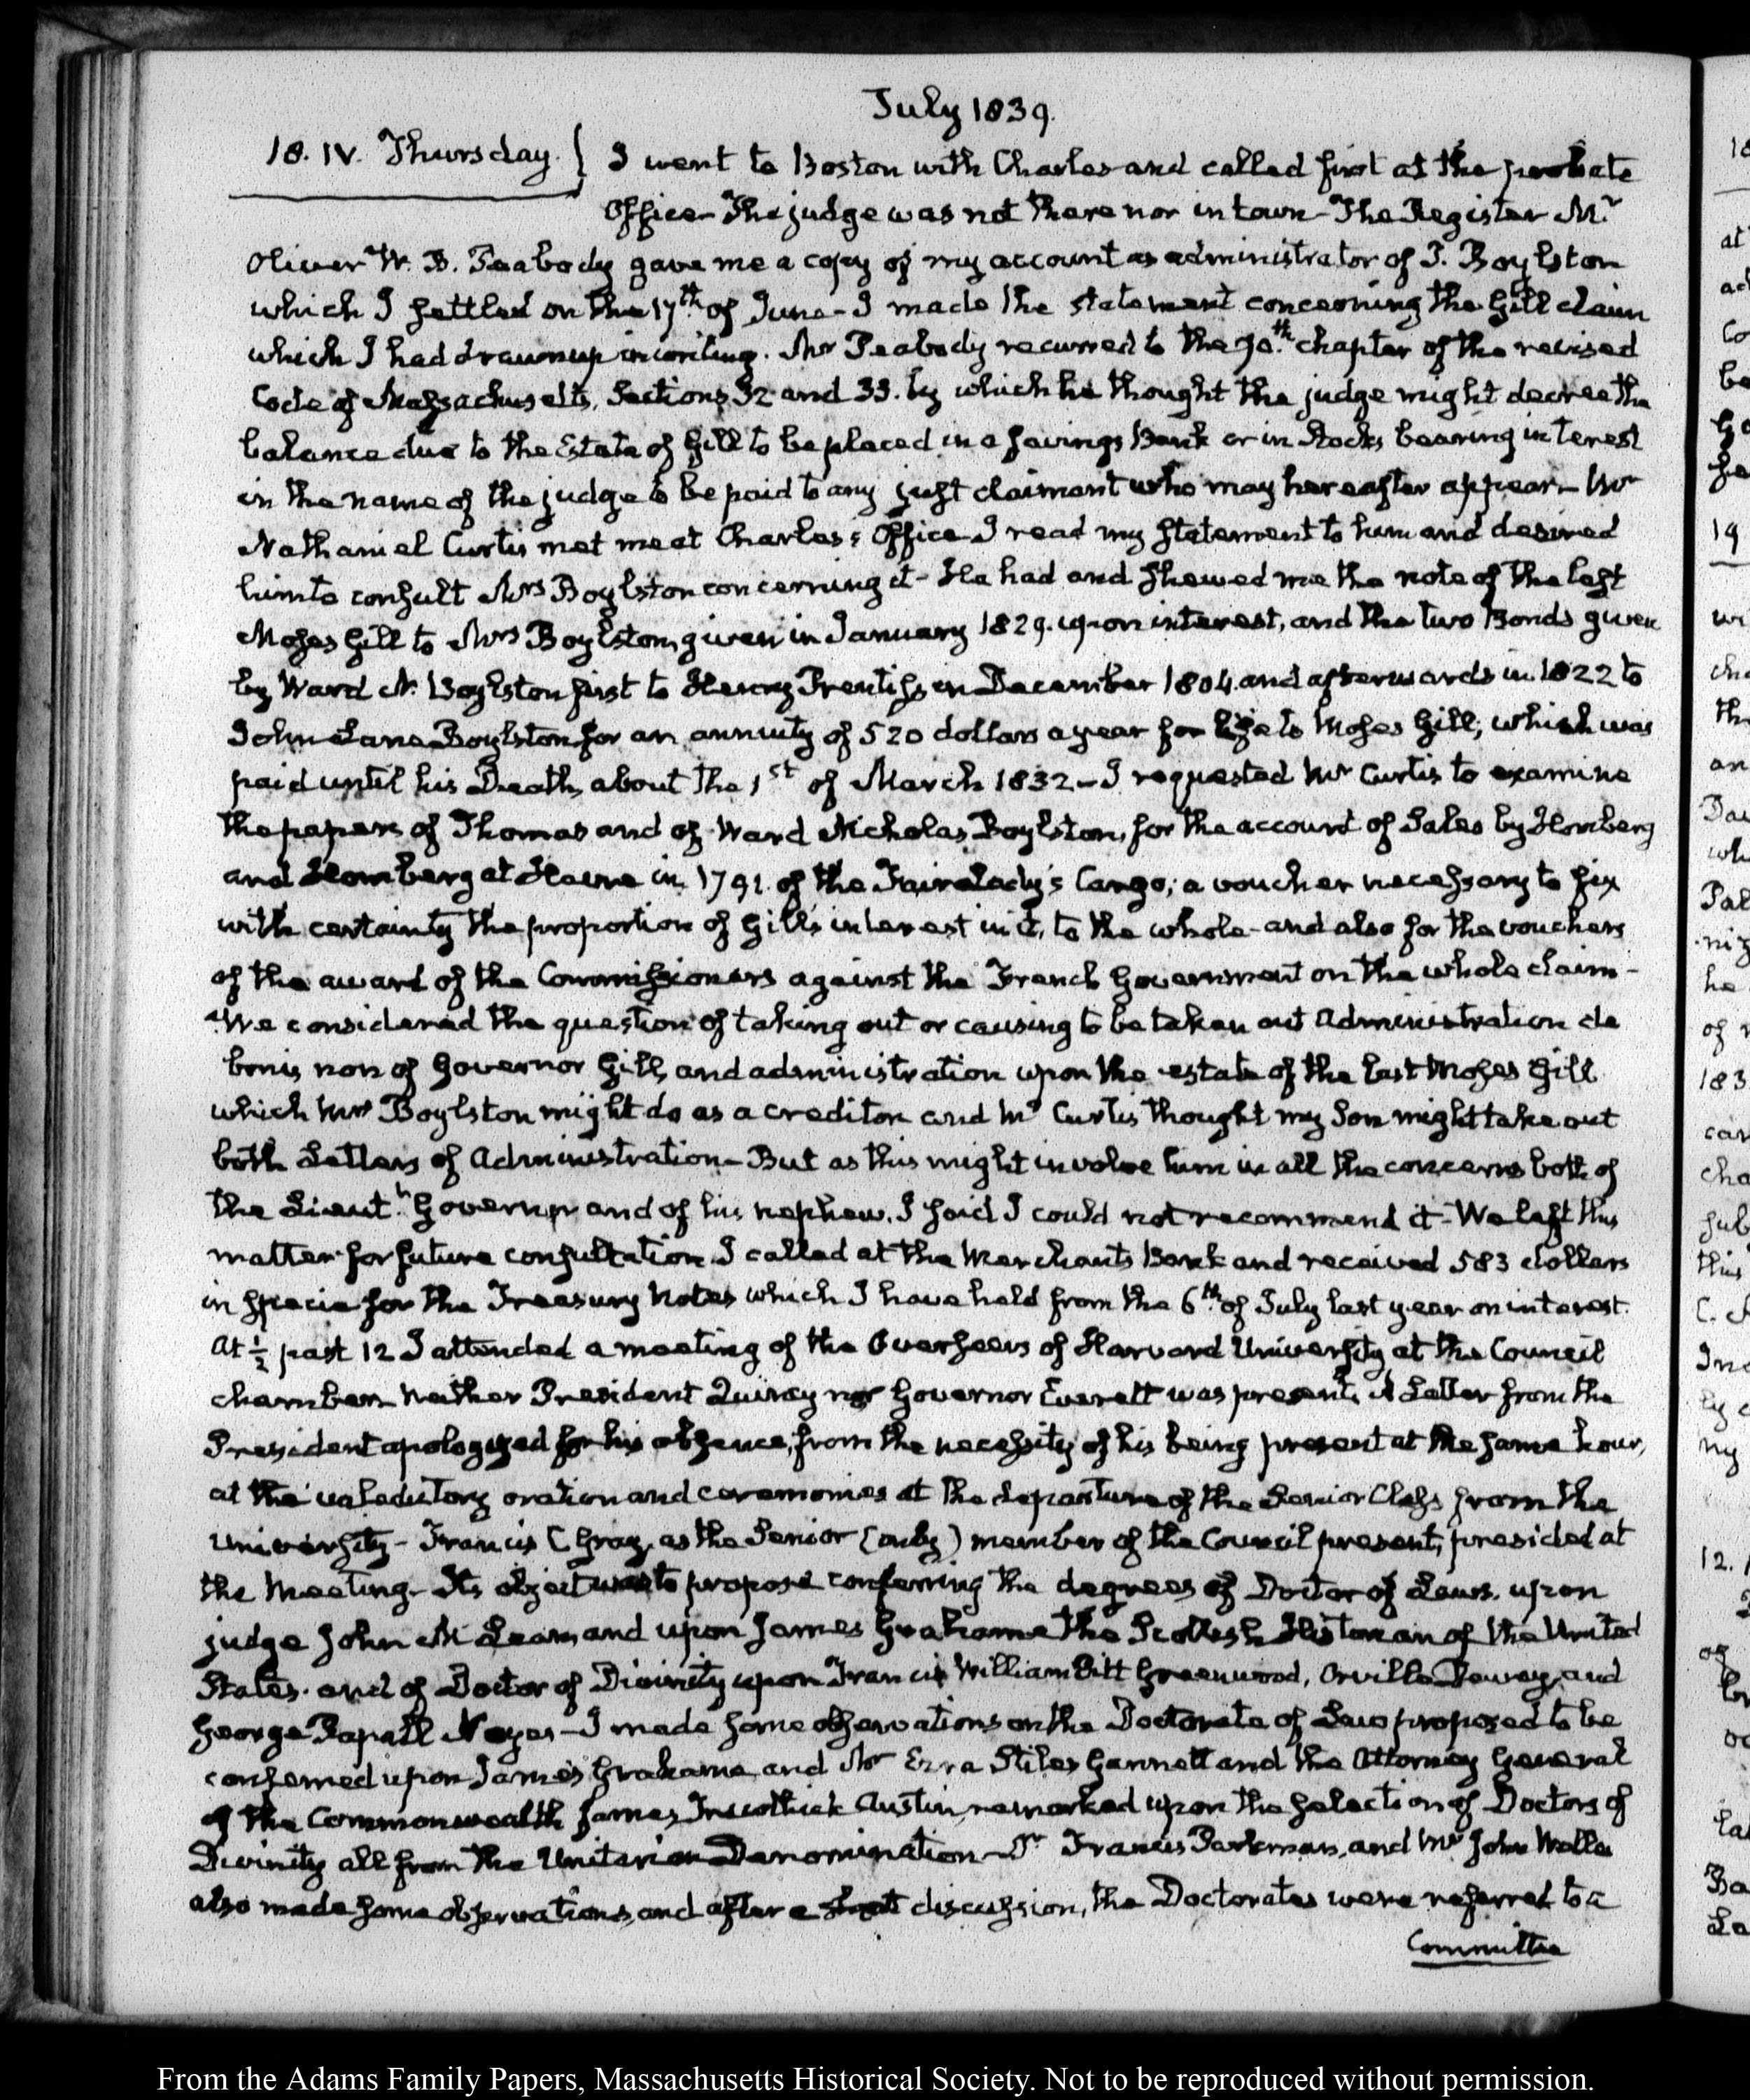 July 1839.
18. IV. Thursday. } I went to Boston with Charles and called first at the probate
Office. The judge was not there nor in town. The Register Mr
Oliver W. B. Peabody gave me a copy of my account as administrator of T. Boylston
which I settled on the 17th of June. I made the statement concerning the Gill claim
which I had drawn up in writing. Mr Peabody recurred to the 70.th chapter of the revised
Code of Massachusetts, Sections 32 and 33. by which he thought the judge might decree the
balance due to the Estate of Gill to be placed in a Savings Bank or in Stocks bearing interest
in the name of the judge to be paid to any just claimant who may hereafter appear. Mr
Nathaniel Curtis met me at Charles's Office. I read my statement to him and desired
him to consult Mrs Boylston concerning it - He had and shewed me the note of the last
Moses Gill to Mrs Boylston, given in January 1829. upon interest, and the two Bonds given
by Ward N. Boylston first to Henry Prentiss in December 1804 and afterwards in 1822 to
John Lane Boylston for an annuity of 520 dollars a year for life to Moses Gill; which was
paid until his Death, about the 1st of March 1832 - I requested Mr Curtis to examine
the papers of Thomas and of Ward Nicholas Boylston, for the account of Sales by Homberg
and Homberg at Havre in 1791. of the Fair Lady's Cargo; a voucher necessary to fix
with certainty the proportion of Gill's interest in it, to the whole - and also for the vouchers
of the award of the Commissioners against the French Government on the whole claim -
We considered the question of taking out or causing to be taken out administration de
bonis non of Governor Gill, and administration upon the estate of the last Moses Gill
which Mrs Boylston might do as a creditor and Mr Curtis thought my Son might take out
both Letters of Administration - But as this might involve him in all the concerns both of
the Lieut.t Governor and of his nephew, I said I could not recommend it - We left this
matter for future consultation. I called at the Merchants Bank and received 583 dollars
in specie for the Treasury Notes which I have held from the 6th of July last year on interest.
At ½ past 12 I attended a meeting of the Overseers of Harvard University at the Council
chamber. Neither President Quincy nor Governor Everett was present. A Letter from the
President apologized for his absence, from the necessity of his being present at the same hour,
at the valedictory oration and ceremonies at the departure of the Senior Class from the
University - Francis C Gray, as the Senior (only) member of the Council present, presided at
the Meeting. Its object was to propose conferring the degrees of Doctor of Laws. upon
judge John McLean, and upon James Grahame the Scottish Historian of the United
States. and of Doctor of Divinity upon Francis William Pitt Greenwood, Orville Dewey, and
George Rapall Noyes - I made some observations on the Doctorate of Laws proposed to be
conferred upon James Grahame, and Mr Ezra Stiles Gannett and the Attorney General
of the Commonwealth James Trecothick Austin, remarked upon the selection of Doctors of
Divinity all from the Unitarian Denomination - Dr Francis Parkman, and Mr John Welles
also made some observations, and after a short discussion, the Doctorates were referred to a
Committee
From the Adams Family Papers, Massachusetts Historical Society. Not to be reproduced without permission.